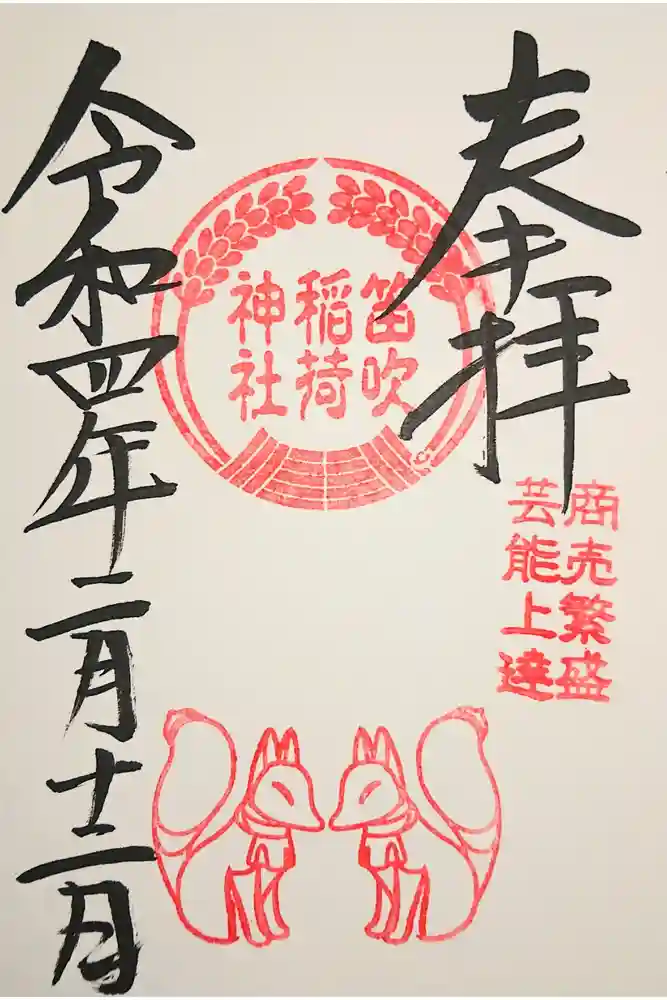 奉拝
商売繁盛
芸能上達
笛吹
稲荷
神社
令和四年二月十二日